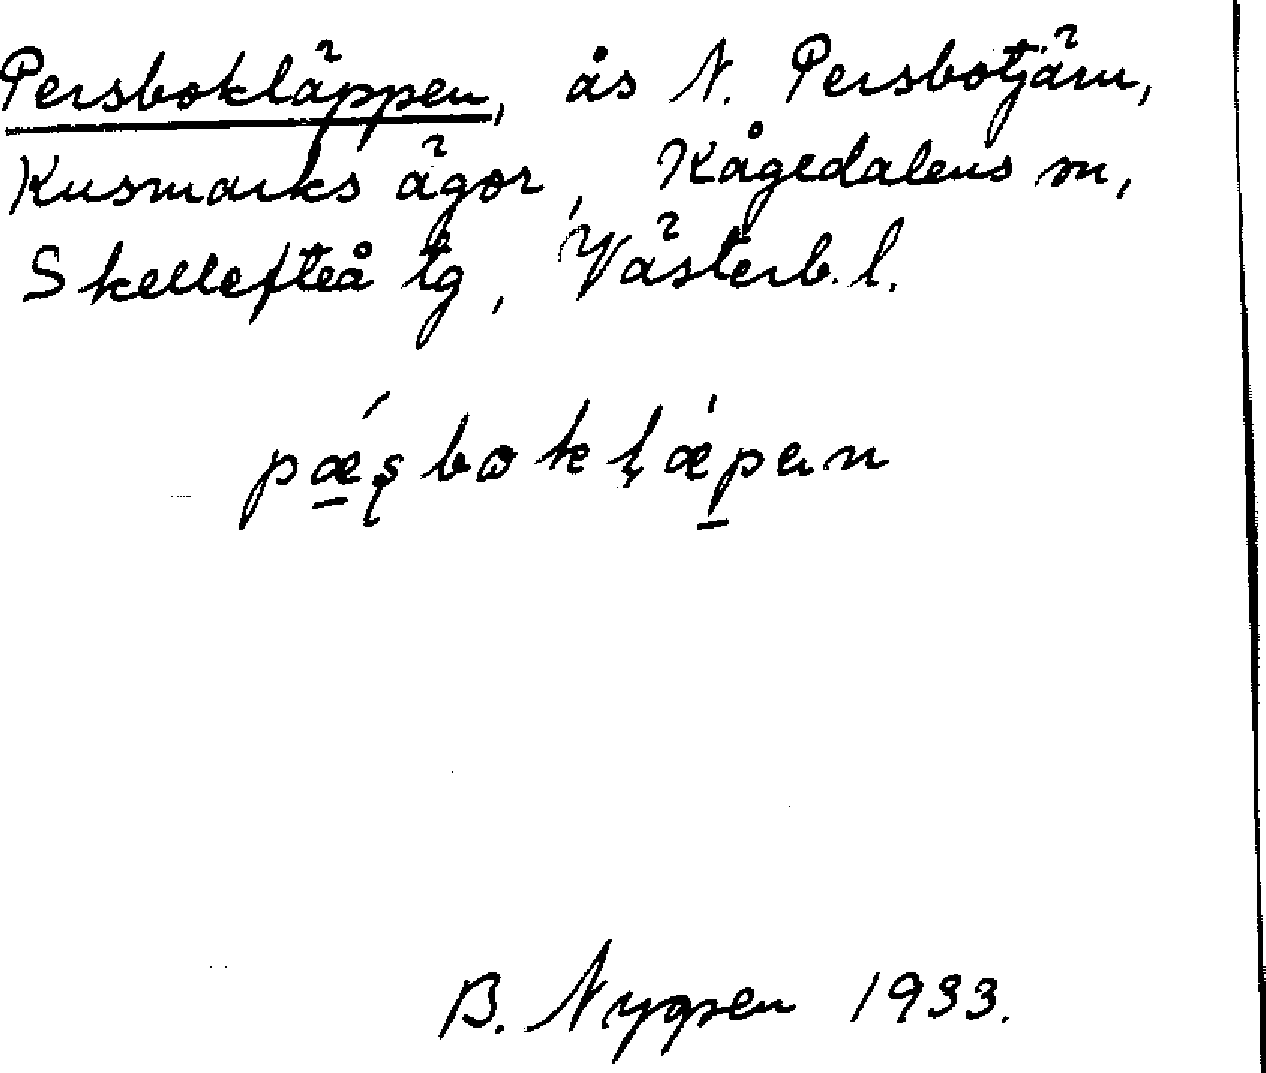 Persbokläppen, ås N. Persbotjärn,
Kusmarks ägor, Kågedalens sn,
Skellefteå tg, Västerb. l.
pǽʂbokɭæpen
B. Nygren 1933.